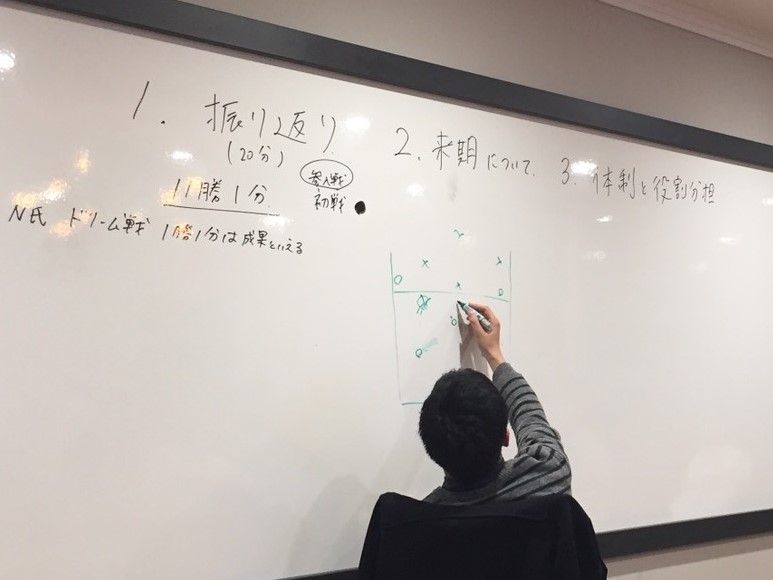 1. 振り返り
(20分)
11勝1分
参入戦
初戦 ●
N氏 ドリーム戦 1勝1分は成果といえる
2. 来期について.
3. 体制と役割分担